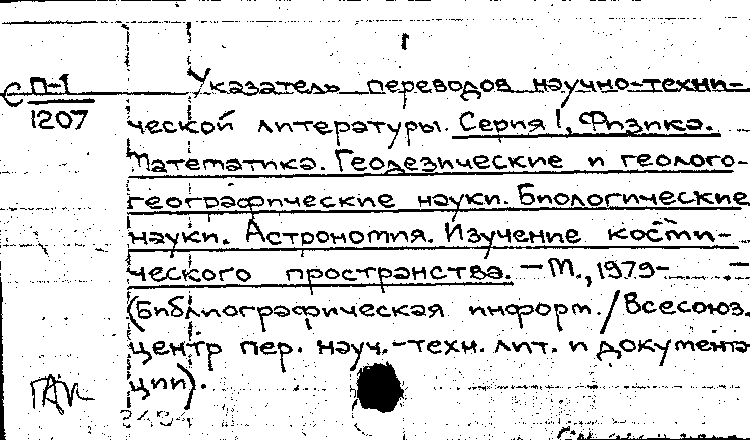 1
С П-1 Указатель переводов научно-техни-
1207 ческой литературы. Серия 1, Физика.
Математика. Геодезические и геолого-
географические науки. Биологические
науки. Астрономия. Изучение косми-
ческого пространства. – М., 1979-
(Библиографическая информ./Всесоюз.
центр пер. науч.-техн. лит. и документа
ции).